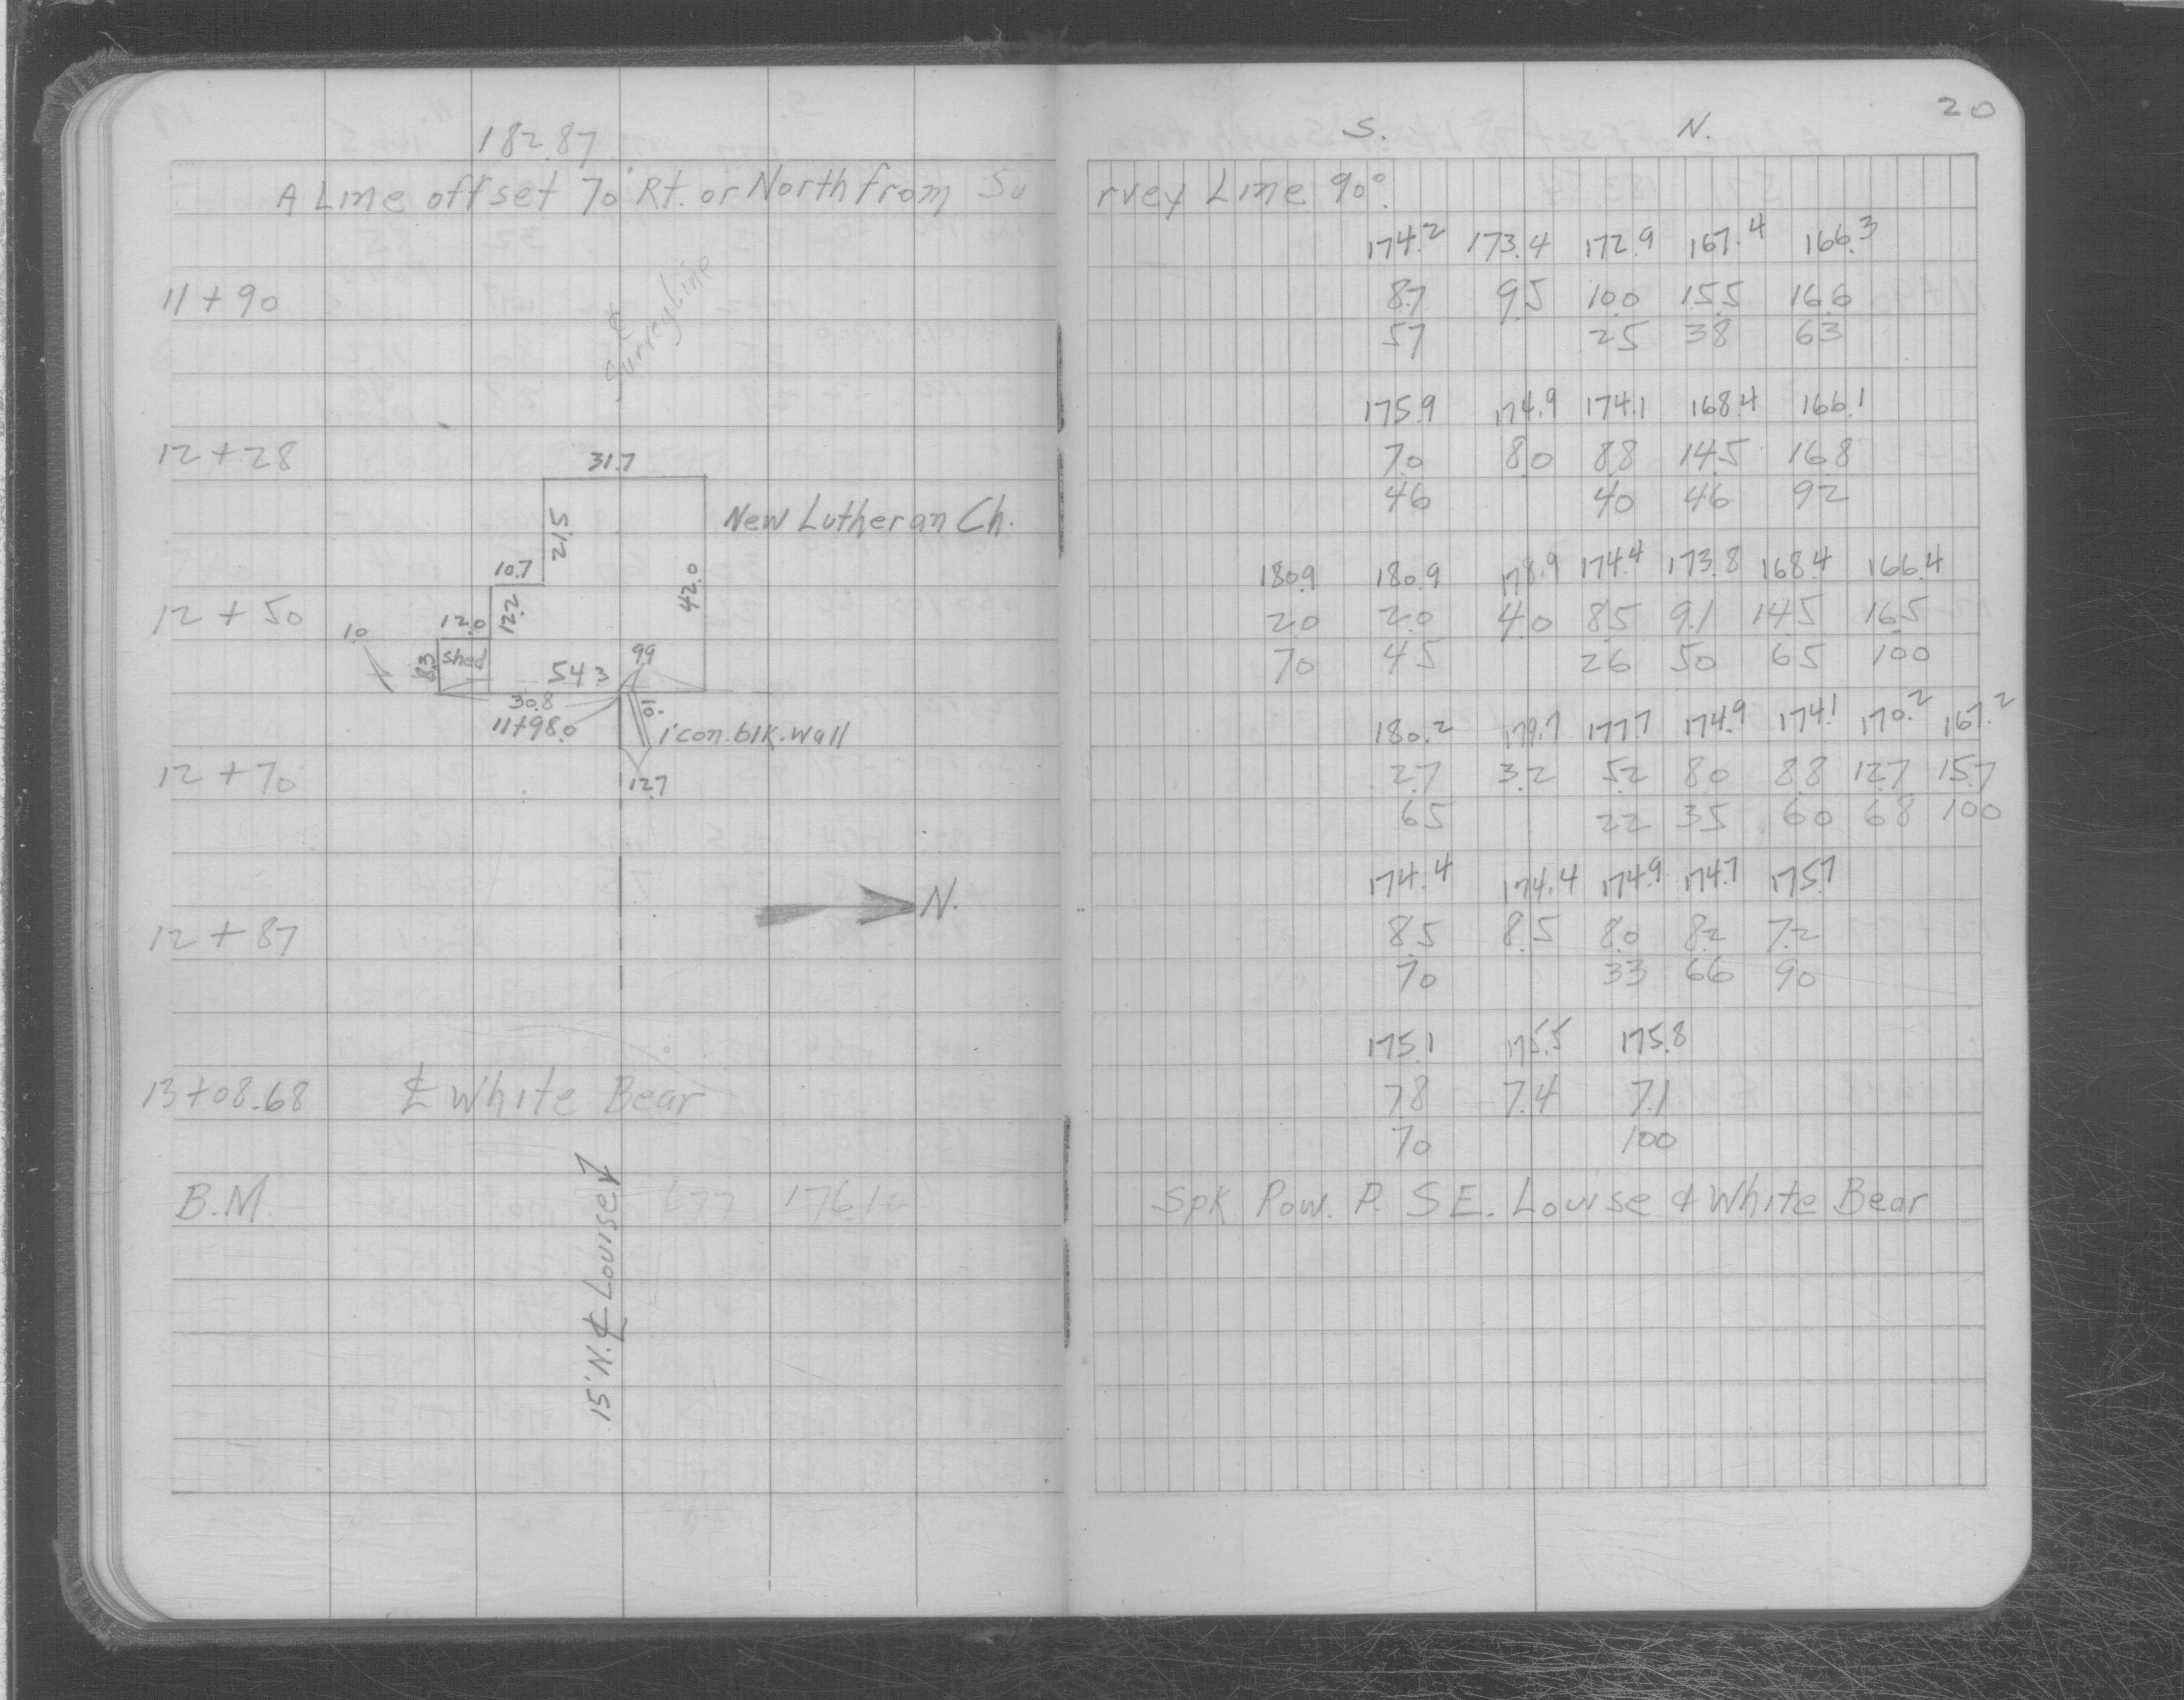 182.87
A Line offset 70' Rt. or North from Su
11+90
℄
Surveyline
12+28
31.7
21.5
New Lutheran Ch.
10.7
12.2
42.0
12+50
1.0
12.0
8.3
shed
54.3
9.9
30.8
11+98.0
10.
con. blk. wall
12+70
12.7
N.
12+87
13+08.68 ℄ White Bear
B.M. 6.77 176.10
15' N. ℄ Louise
20
S. N.
rvey Line 90°.
174.2 173.4 172.9 167.4 166.3
8.7 9.5 10.0 15.5 16.6
57 25 38 63
175.9 174.9 174.1 168.4 166.1
7.0 8.0 8.8 14.5 16.8
46 40 46 92
180.9 180.9 178.9 174.4 173.8 168.4 166.4
2.0 2.0 4.0 8.5 9.1 14.5 16.5
70 45 26 50 65 100
180.2 179.7 177.7 174.9 174.1 170.2 167.2
2.7 3.2 5.2 8.0 8.8 12.7 15.7
65 22 35 60 68 100
174.4 174.4 174.9 174.7 175.7
8.5 8.5 8.0 8.2 7.2
70 33 66 90
175.1 175.5 175.8
7.8 7.4 7.1
70 100
Spk Pow. P. S E. Louise & White Bear